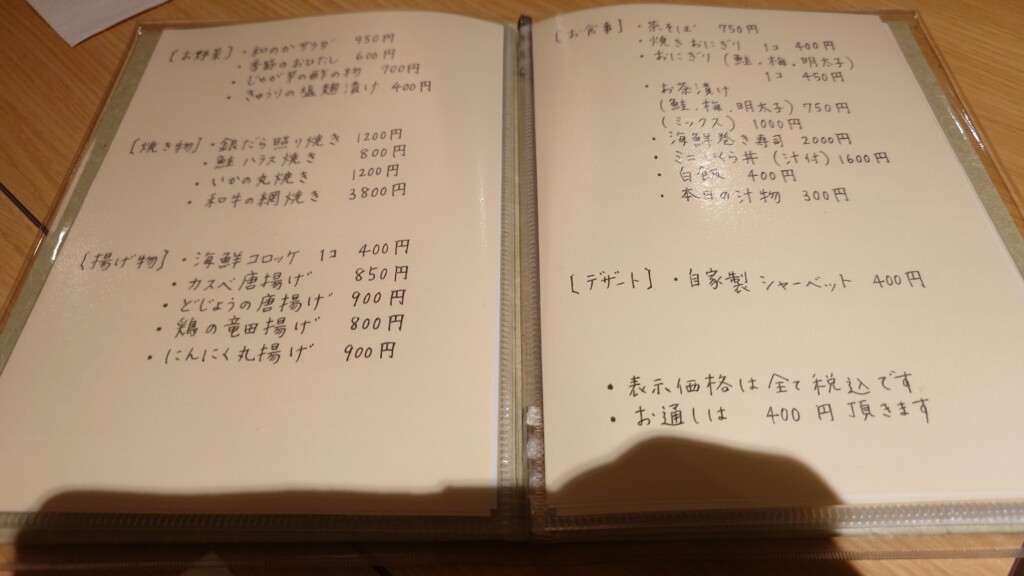 [お野菜] ・和のかサラダ 950円
・季節のおひたし 600円
・じゃが芋の酢の物 700円
・きゅうりの塩麹漬け 400円
[焼き物] ・銀だら照り焼き 1200円
・鮭ハラス焼き 800円
・いかの丸焼き 1200円
・和牛の網焼き 3800円
[揚げ物] ・海鮮コロッケ 1コ 400円
・カスベ唐揚げ 850円
・どじょうの唐揚げ 900円
・鶏の竜田揚げ 800円
・にんにく丸揚げ 900円
[お食事] ・茶そば 750円
・焼きおにぎり 1コ 400円
・おにぎり (鮭、梅、明太子)
1コ 450円
・お茶漬け
(鮭、梅、明太子) 750円
(ミックス) 1000円
・海鮮巻き寿司 2000円
・ミニいくら丼 (汁付) 1600円
・白飯 400円
・本日の汁物 300円
[デザート] ・自家製シャーベット 400円
・表示価格は全て税込です
・お通しは 400円頂きます